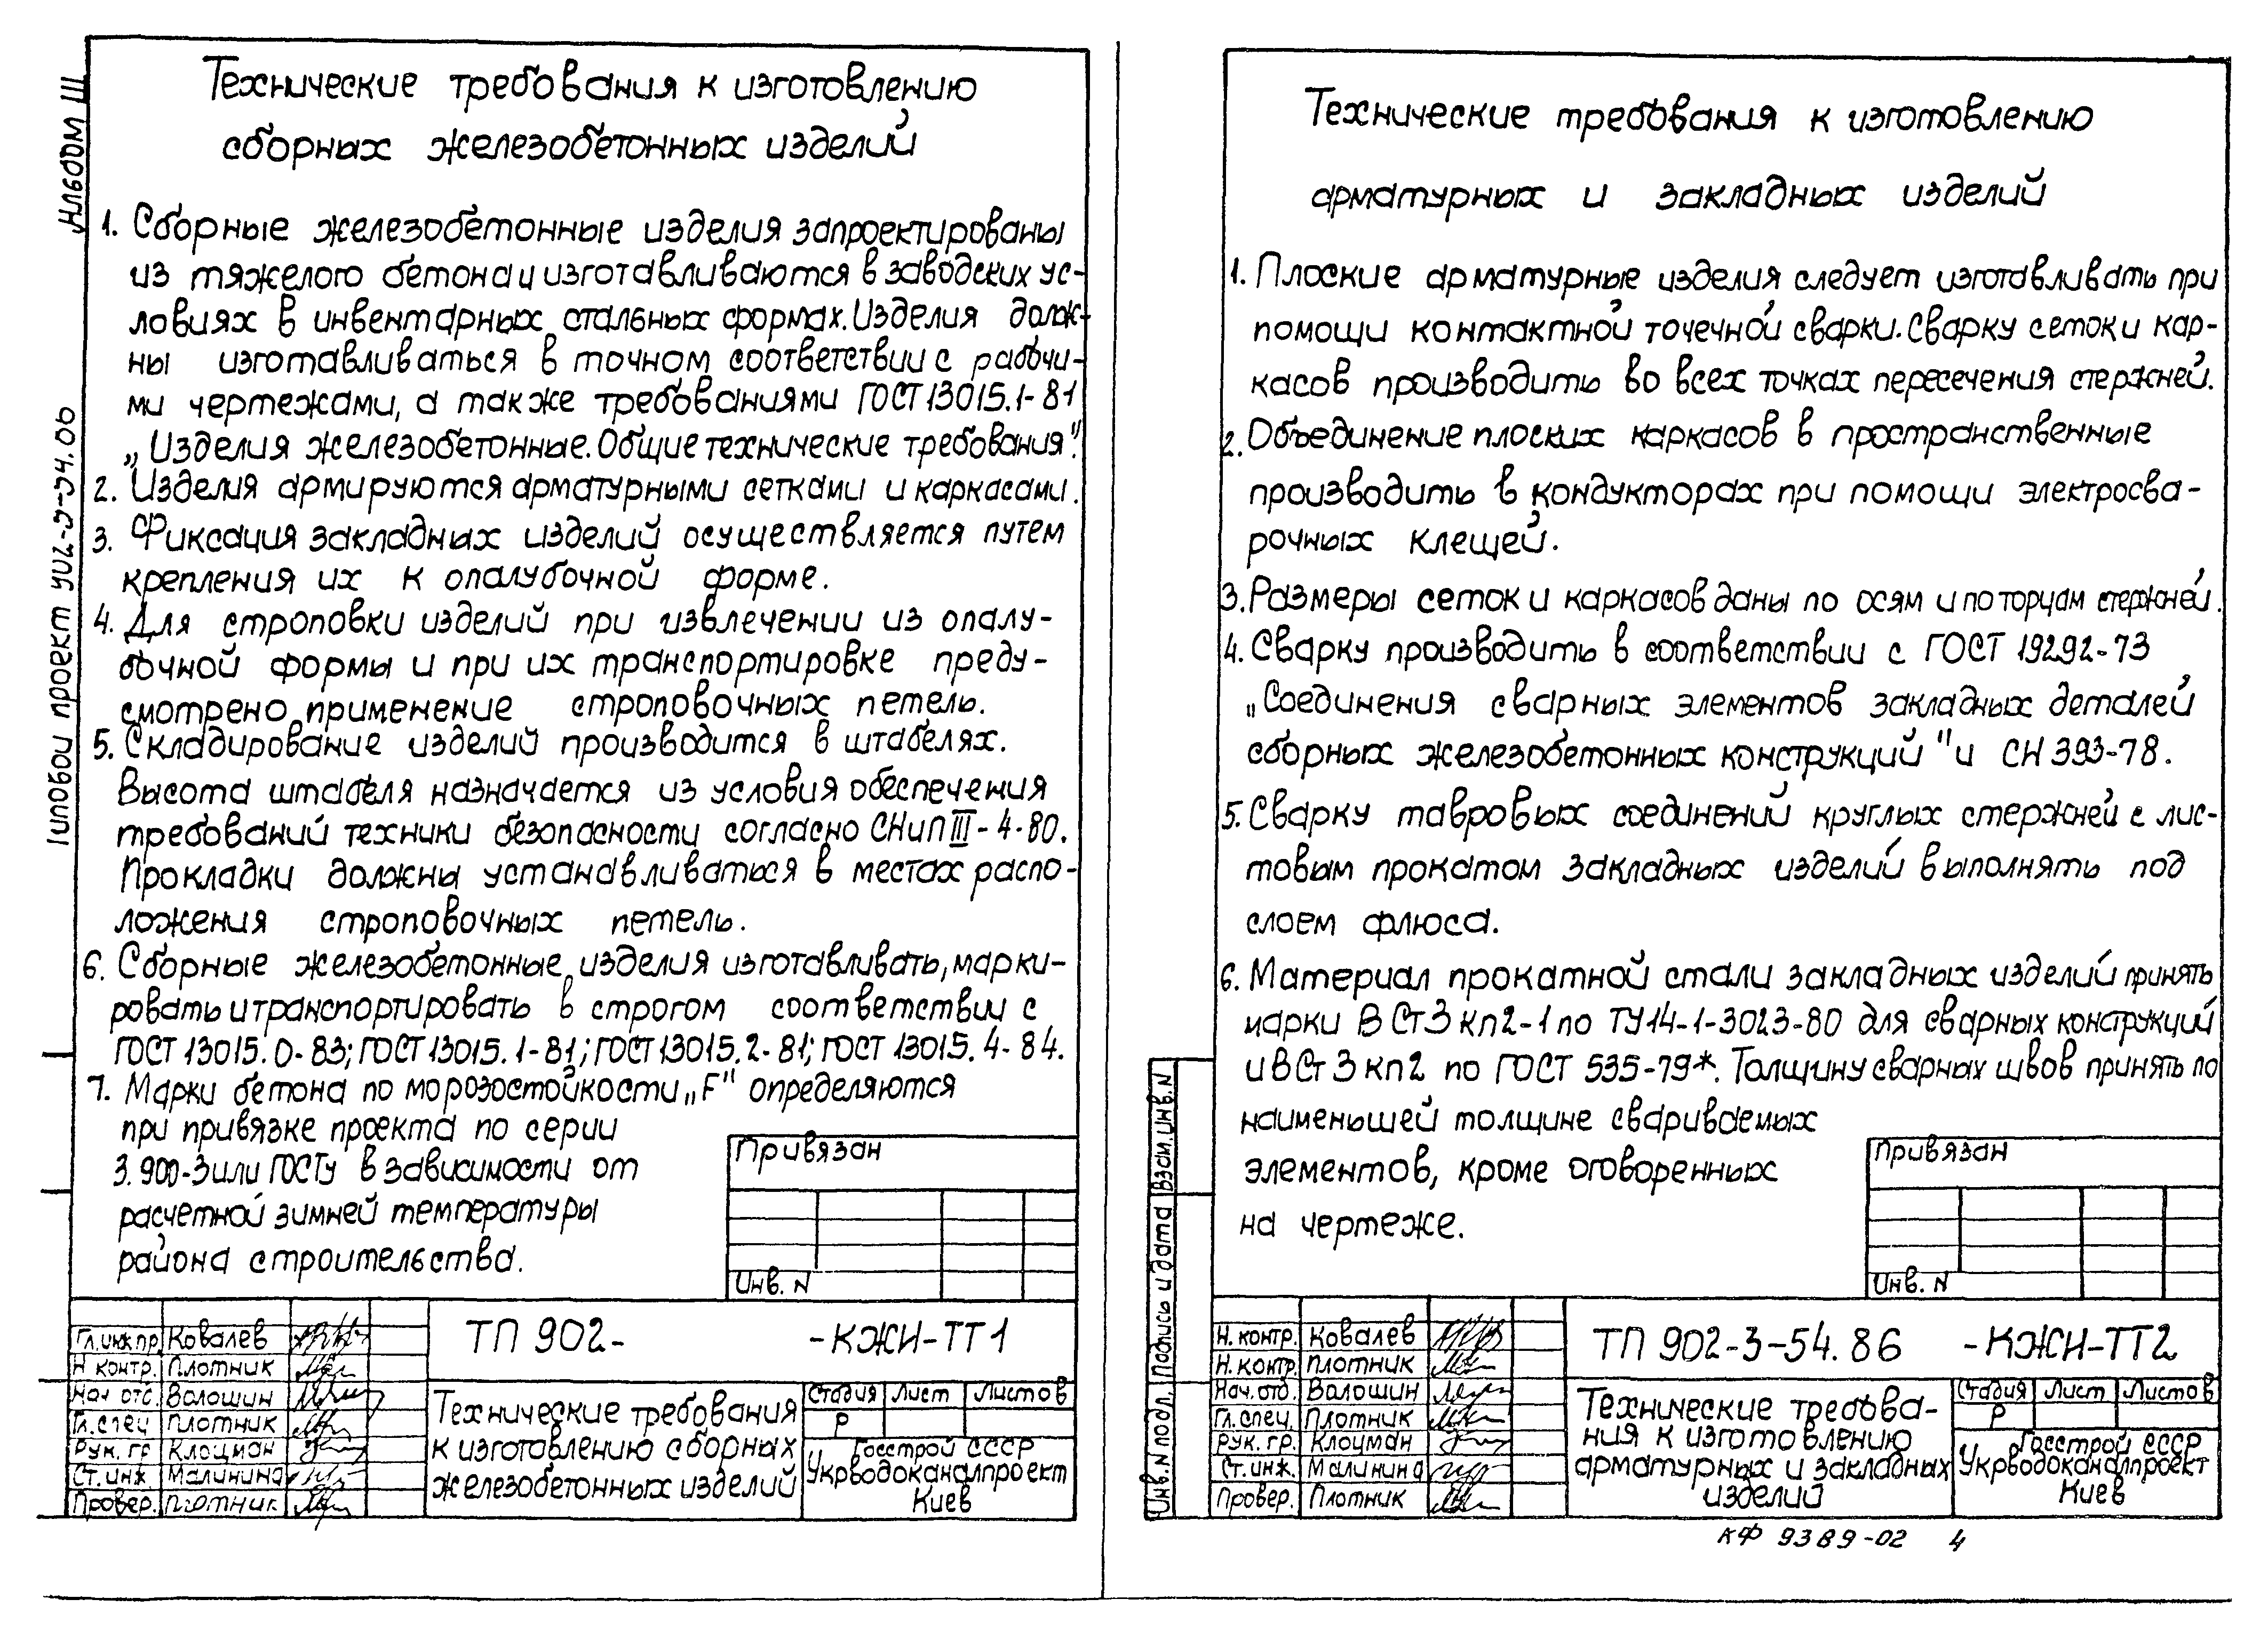 Альбом III
Типовой проект 902-3-54.86
Технические требования к изготовлению
сборных железобетонных изделий
1. Сборные железобетонные изделия запроектированы
из тяжелого бетона и изготавливаются в заводских ус-
ловиях в инвентарных стальных формах. Изделия долж-
ны изготавливаться в точном соответствии с рабочи-
ми чертежами, а также требованиями ГОСТ 13015.1-81
„Изделия железобетонные. Общие технические требования".
2. Изделия армируются арматурными сетками и каркасами.
3. Фиксация закладных изделий осуществляется путем
крепления их к опалубочной форме.
4. Для строповки изделий при извлечении из опалу-
бочной формы и при их транспортировке преду-
смотрено применение строповочных петель.
5. Складирование изделий производится в штабелях.
Высота штабеля назначается из условия обеспечения
требований техники безопасности согласно СНиП III-4-80.
Прокладки должны устанавливаться в местах распо-
ложения строповочных петель.
6. Сборные железобетонные изделия изготавливать, марки-
ровать и транспортировать в строгом соответствии с
ГОСТ 13015.0-83; ГОСТ 13015.1-81; ГОСТ 13015.2-81; ГОСТ 13015.4-84.
7. Марки бетона по морозостойкости „F" определяются
при привязке проекта по серии
3.900-3 или ГОСТу в зависимости от
расчетной зимней температуры
района строительства.
Привязан
Инв. N
Гл.инж.пр. Ковалев
Н контр. Плотник
Нач отд. Волошин
Гл. спец Плотник
Рук. гр Клоцман
Ст. инж Малинина
Провер. Плотник
ТП 902- -КЖИ-ТТ1
Технические требования
к изготовлению сборных
железобетонных изделий
Стадия Лист Листов
Р
Госстрой СССР
Укрводоканалпроект
Киев
Технические требования к изготовлению
арматурных и закладных изделий
1. Плоские арматурные изделия следует изготавливать при
помощи контактной точечной сварки. Сварку сеток и кар-
касов производить во всех точках пересечения стержней.
2. Объединение плоских каркасов в пространственные
производить в кондукторах при помощи электросва-
рочных клещей.
3. Размеры сеток и каркасов даны по осям и по торцам стержней.
4. Сварку производить в соответствии с ГОСТ 19292-73
„Соединения сварных элементов закладных деталей
сборных железобетонных конструкций" и СН 393-78.
5. Сварку тавровых соединений круглых стержней с лис-
товым прокатом закладных изделий выполнять под
слоем флюса.
6. Материал прокатной стали закладных изделий принять
марки В Ст 3 кп2-1 по ТУ14-1-3023-80 для сварных конструкций
и В Ст 3 кп2 по ГОСТ 535-79*. Толщину сварных швов принять по
наименьшей толщине свариваемых
элементов, кроме оговоренных
на чертеже.
Привязан
Инв. N
Взам. инв. N
Подпись и дата
Инв. N подл.
Н. контр. Ковалев
Н. контр. Плотник
Нач. отд. Волошин
Гл. спец. Плотник
Рук. гр. Клоцман
Ст. инж. Малинина
Провер. Плотник
ТП 902-3-54.86 -КЖИ-ТТ2
Технические требова-
ния к изготовлению
арматурных и закладных
изделий
Стадия Лист Листов
Р
Госстрой СССР
Укрводоканалпроект
Киев
КФ 9389-02 4